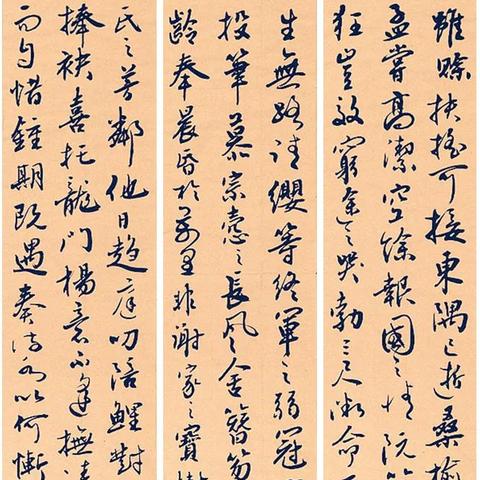 雖賒扶搖可接東隅已逝桑榆
孟嘗高潔空餘報國之情阮
狂豈效窮途之哭勃三尺微命
生無路請纓等終軍之弱冠
投筆慕宗愨之長風舍簪笏
齡奉晨昏於萬里非謝家之寶樹
氏之芳鄰他日趨庭叨陪鯉對
捧袂喜托龍門楊意不逢撫
而自惜鍾期既遇奏流水以何慚